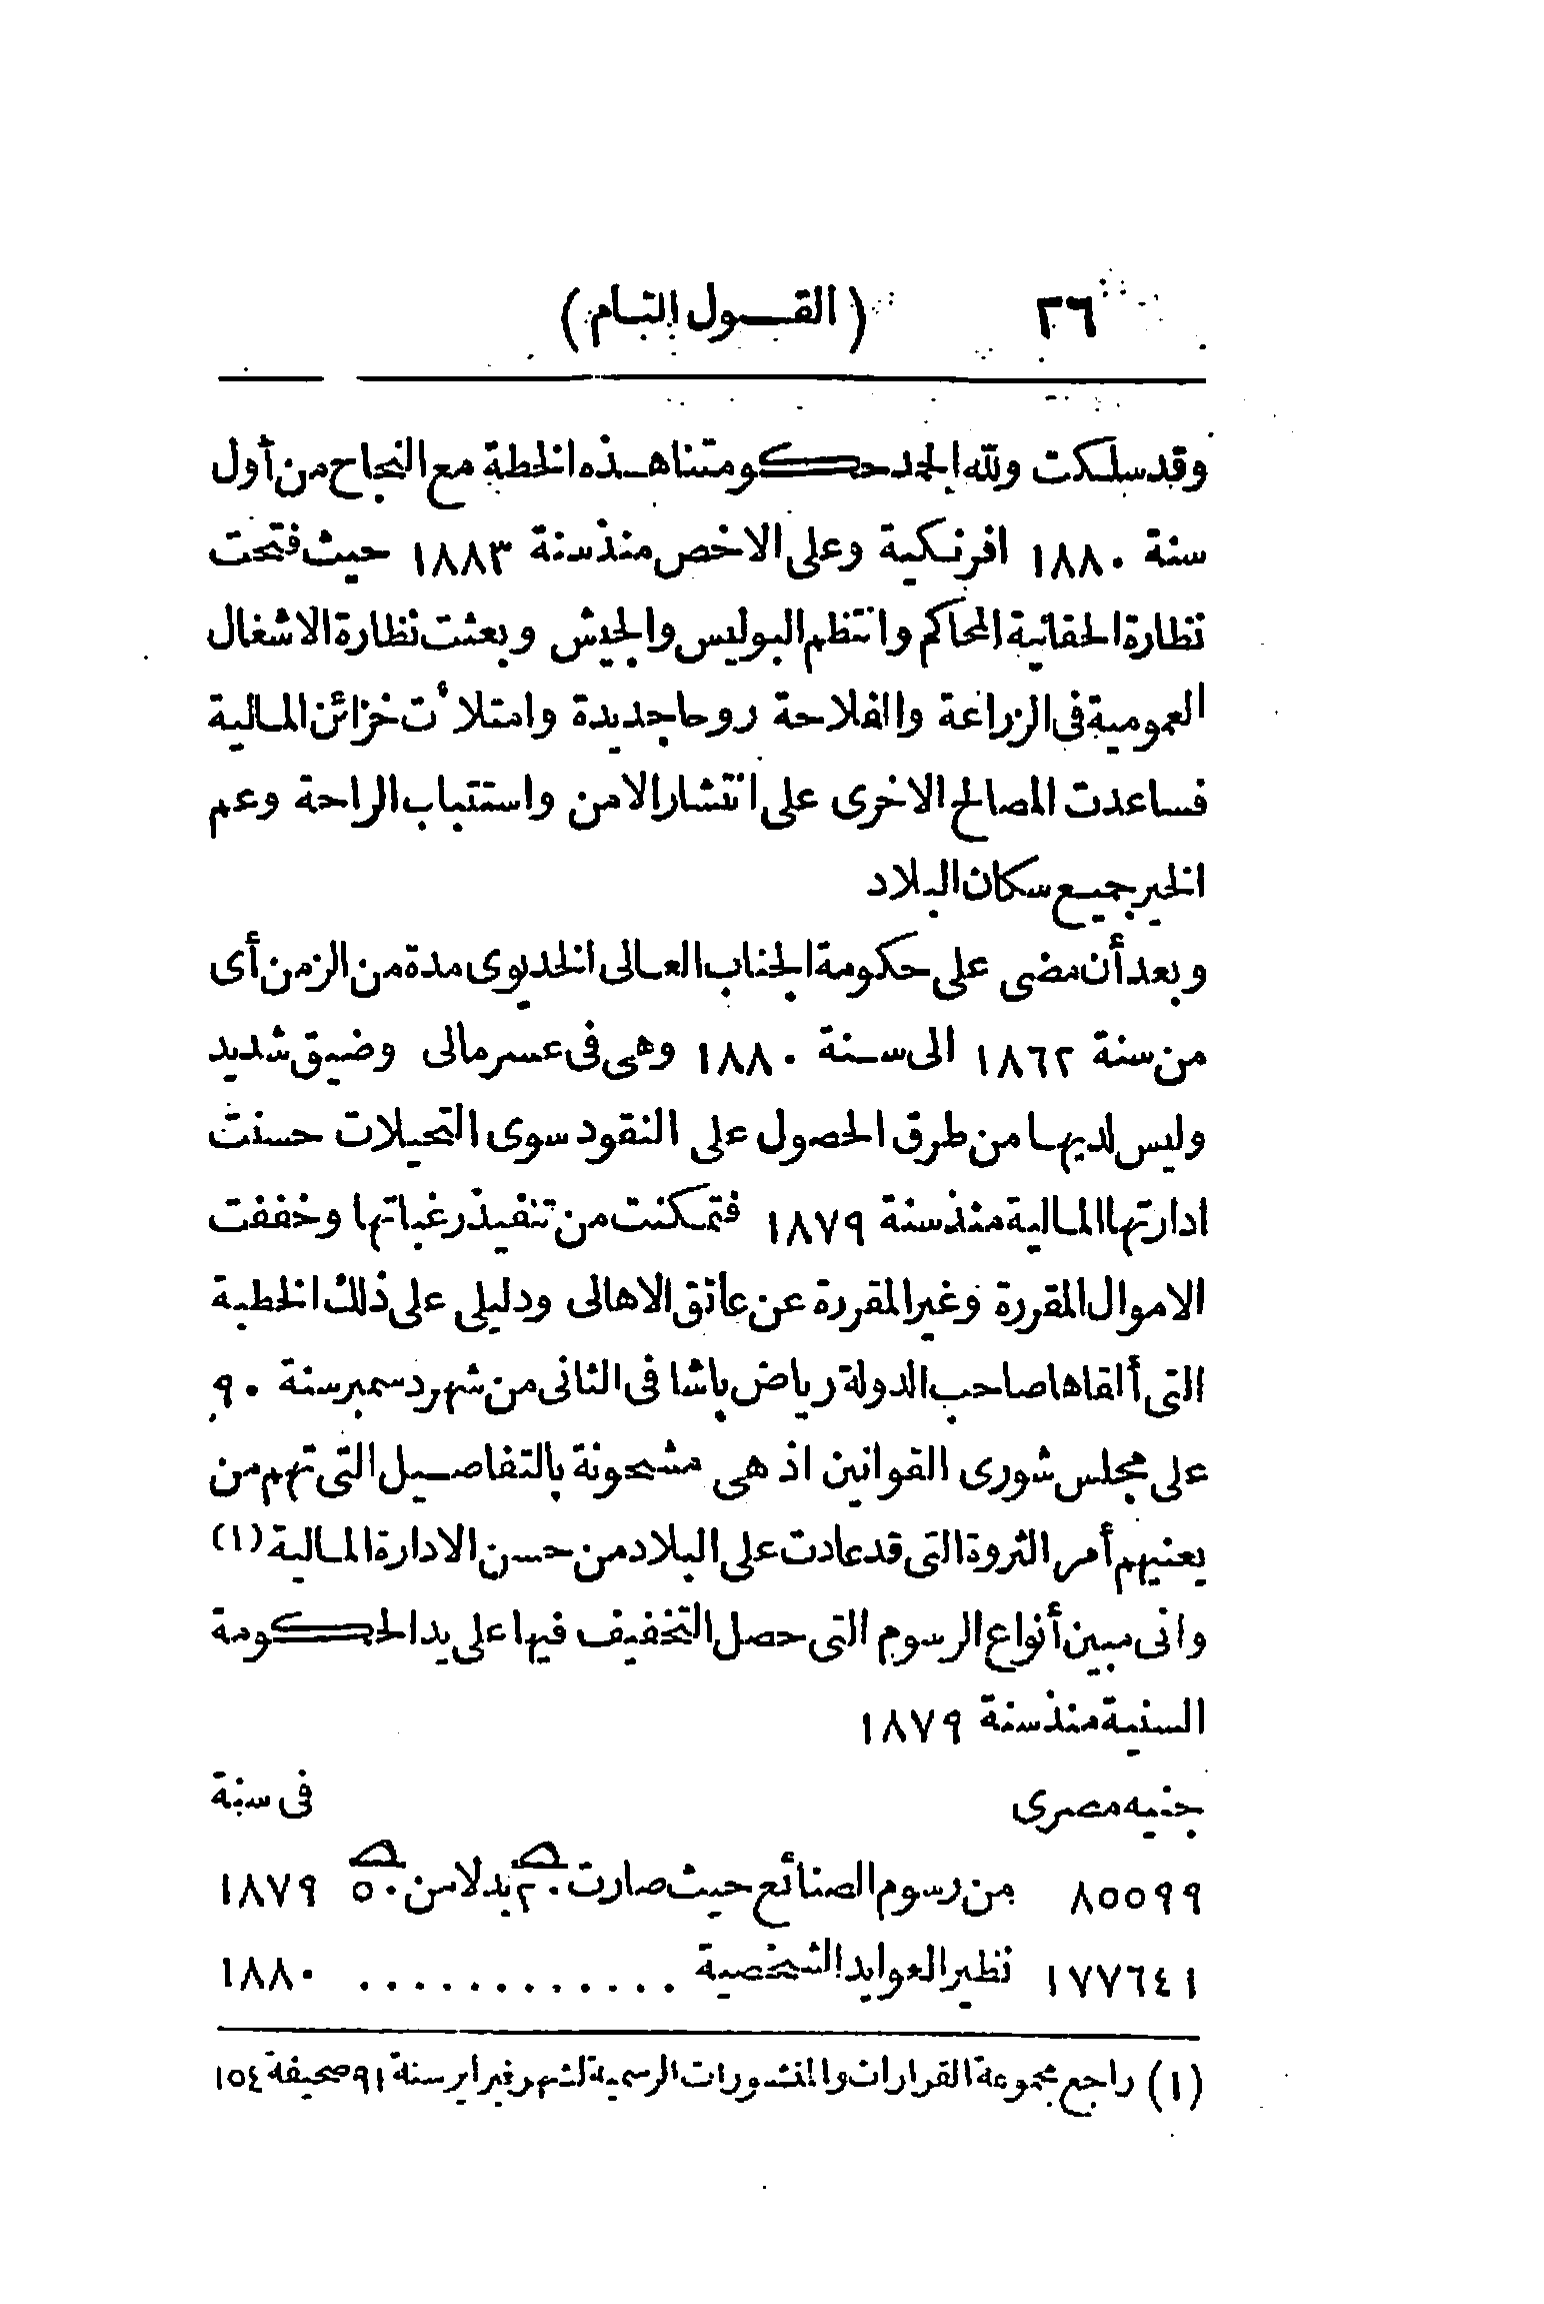 ٢٦ (القول التام)
وقد سلكت ولله الحمد حكومتنا هذه الخطة مع النجاح من أول
سنة ١٨٨٠ افرنكية وعلى الاخص منذ سنة ١٨٨٣ حيث فتحت
نظارة الحقانية المحاكم وانتظم البوليس والجيش وبعثت نظارة الاشغال
العمومية فى الزراعة والفلاحة روحا جديدة وامتلأت خزائن المالية
فساعدت المصالح الاخرى على انتشار الامن واستتباب الراحة وعم
الخير جميع سكان البلاد
وبعد أن مضى على حكومة الجناب العالى الخديوى مدة من الزمن أى
من سنة ١٨٦٢ الى سنة ١٨٨٠ وهى فى عسر مالى وضيق شديد
وليس لديها من طرق الحصول على النقود سوى التحيلات حسنت
ادارتها المالية منذ سنة ١٨٧٩ فتمكنت من تنفيذ رغباتها وخففت
الاموال المقررة وغير المقررة عن عاتق الاهالى ودليلى على ذلك الخطبة
التى ألقاها صاحب الدولة رياض باشا فى الثانى من شهر دسمبر سنة ٩٠
على مجلس شورى القوانين اذ هى مشحونة بالتفاصيل التى تهم من
يعنيهم أمر الثروة التى قد عادت على البلاد من حسن الادارة المالية (١)
وانى مبين أنواع الرسوم التى حصل التخفيف فيها على يد الحكومة
السنية منذ سنة ١٨٧٩
جنيه مصرى فى سنة
٨٥٠٩٩ من رسوم الصنائع حيث صارت ٢٠ بدلا من ٥٠ ١٨٧٩
١٧٧٦٤١ نظير العوايد الشخصية . . . . . . . . . . . . ١٨٨٠
(١) راجع مجموعة القرارات والمنشورات الرسمية لشهر فبراير سنة ٩١ صحيفة ١٥٤